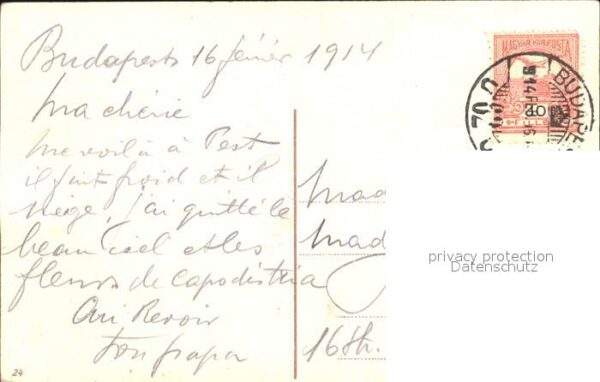 Budapest 16 février 1914
Ma chérie
me voilà à Pest
il fait froid et il
neige, j'ai quitté le
beau ciel et les
fleurs de capodistria
Au Revoir
ton papa
Mad
Mad
16 th.
MAGYAR KIR. POSTA
10
BUDAPES
914 FEB 16
24
privacy protection
Datenschutz